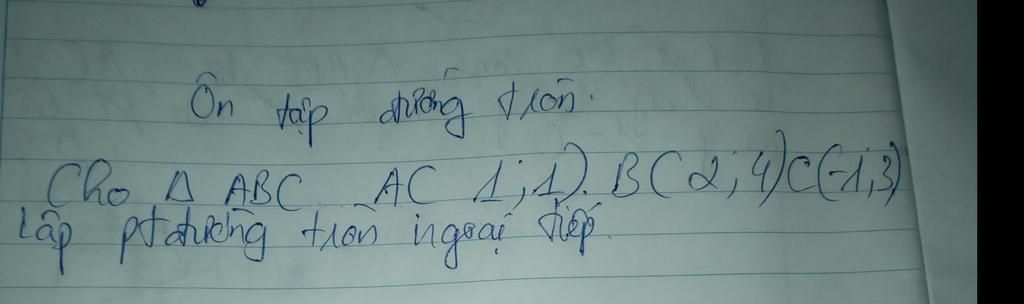 Ôn tập đường tròn.
Cho Δ ABC A( 1; 1). B( 2; 4) C(-1; 3)
Lập pt đường tròn ngoại tiếp.